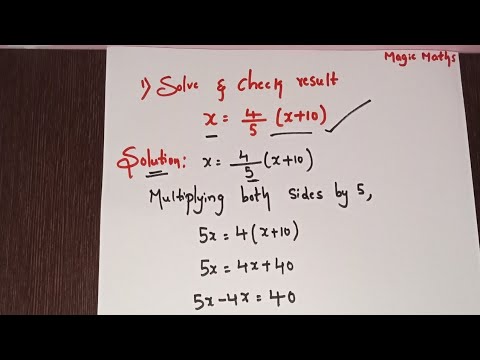 Magic Maths
1) Solve & check result
x = 4/5 (x+10)
Solution: x = 4/5 (x+10)
Multiplying both sides by 5,
5x = 4(x+10)
5x = 4x+40
5x-4x = 40